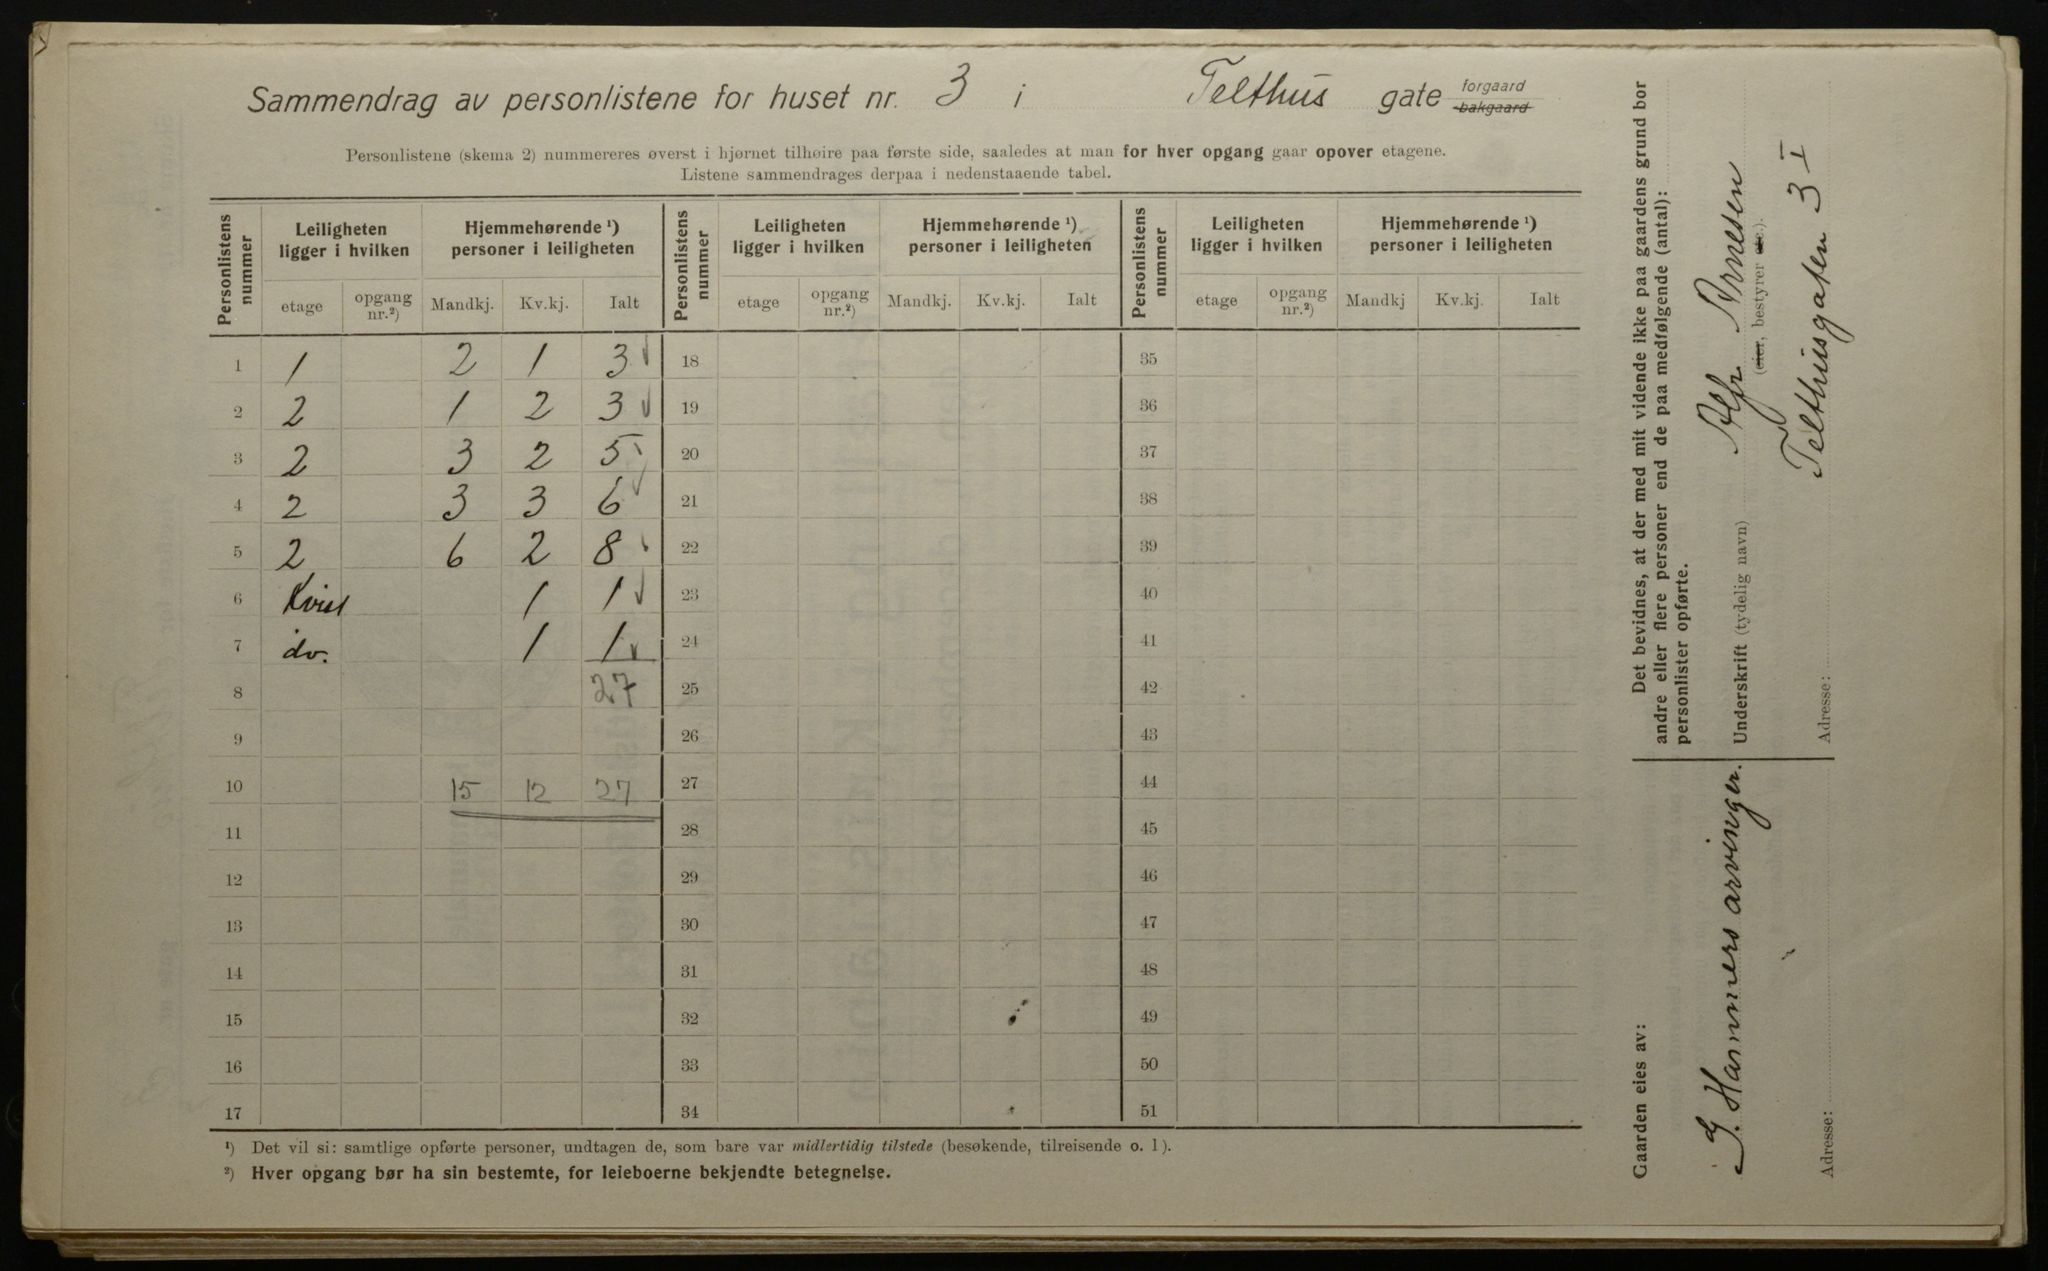 Sammendrag av personlistene for huset nr. 3 i Telthus gate forgaard bakgaard
Personlistene (skema 2) nummereres øverst i hjørnet tilhøire paa første side, saaledes at man for hver opgang gaar opover etagene.
Listene sammendrages derpaa i nedenstaaende tabel.
Personlistens nummer | Leiligheten ligger i hvilken | Hjemmehørende ¹) personer i leiligheten | Personlistens nummer | Leiligheten ligger i hvilken | Hjemmehørende ¹) personer i leiligheten | Personlistens nummer | Leiligheten ligger i hvilken | Hjemmehørende ¹) personer i leiligheten
etage | opgang nr.²) | Mandkj. | Kv.kj. | Ialt | etage | opgang nr.²) | Mandkj. | Kv.kj. | Ialt | etage | opgang nr.²) | Mandkj | Kv.kj. | Ialt
1 | 1 | 2 | 1 | 3 | 18 | 35
2 | 2 | 1 | 2 | 3 | 19 | 36
3 | 2 | 3 | 2 | 5 | 20 | 37
4 | 2 | 3 | 3 | 6 | 21 | 38
5 | 2 | 6 | 2 | 8 | 22 | 39
6 | Kvist | 1 | 1 | 23 | 40
7 | do. | 1 | 1 | 24 | 41
8 | 27 | 25 | 42
9 | 26 | 43
10 | 15 | 12 | 27 | 27 | 44
11 | 28 | 45
12 | 29 | 46
13 | 30 | 47
14 | 31 | 48
15 | 32 | 49
16 | 33 | 50
17 | 34 | 51
¹) Det vil si: samtlige opførte personer, undtagen de, som bare var midlertidig tilstede (besøkende, tilreisende o. l).
²) Hver opgang bør ha sin bestemte, for leieboerne bekjendte betegnelse.
Det bevidnes, at der med mit vidende ikke paa gaardens grund bor
andre eller flere personer end de paa medfølgende (antal):
personlister opførte.
Underskrift (tydelig navn) Alf Arnesen
(eier, bestyrer etc.).
Adresse: Telthusgaten 3 I
Gaarden eies av:
J. Hammers arvinger.
Adresse: